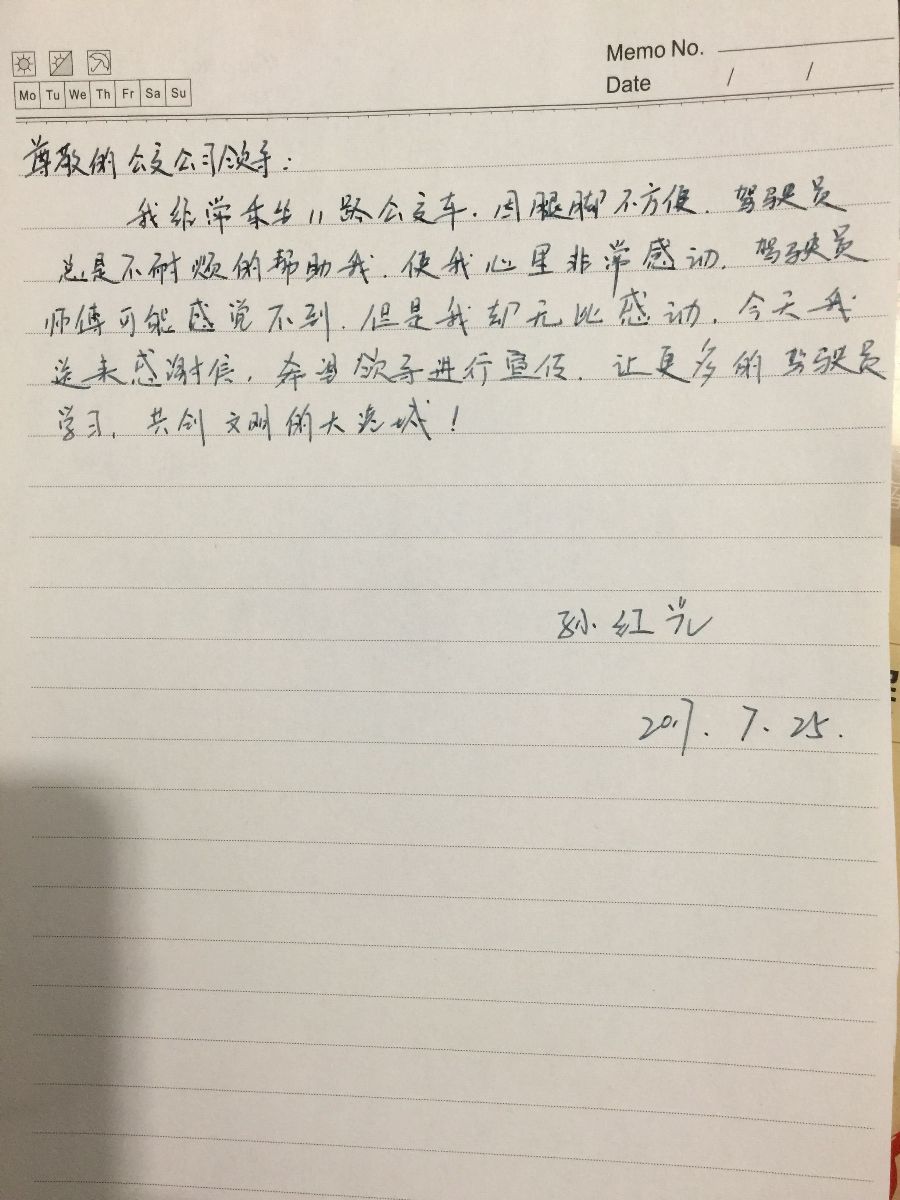 Memo No.
Mo Tu We Th Fr Sa Su
Date / /
尊敬的公交公司领导：
我经常乘坐11路公交车．因腿脚不方便．驾驶员
总是不耐烦的帮助我．使我心里非常感动．驾驶员
师傅可能感觉不到．但是我却无比感动．今天我
送来感谢信．希望领导进行宣传．让更多的驾驶员
学习，共创文明的大港城！
孙红光
2017．7．25．